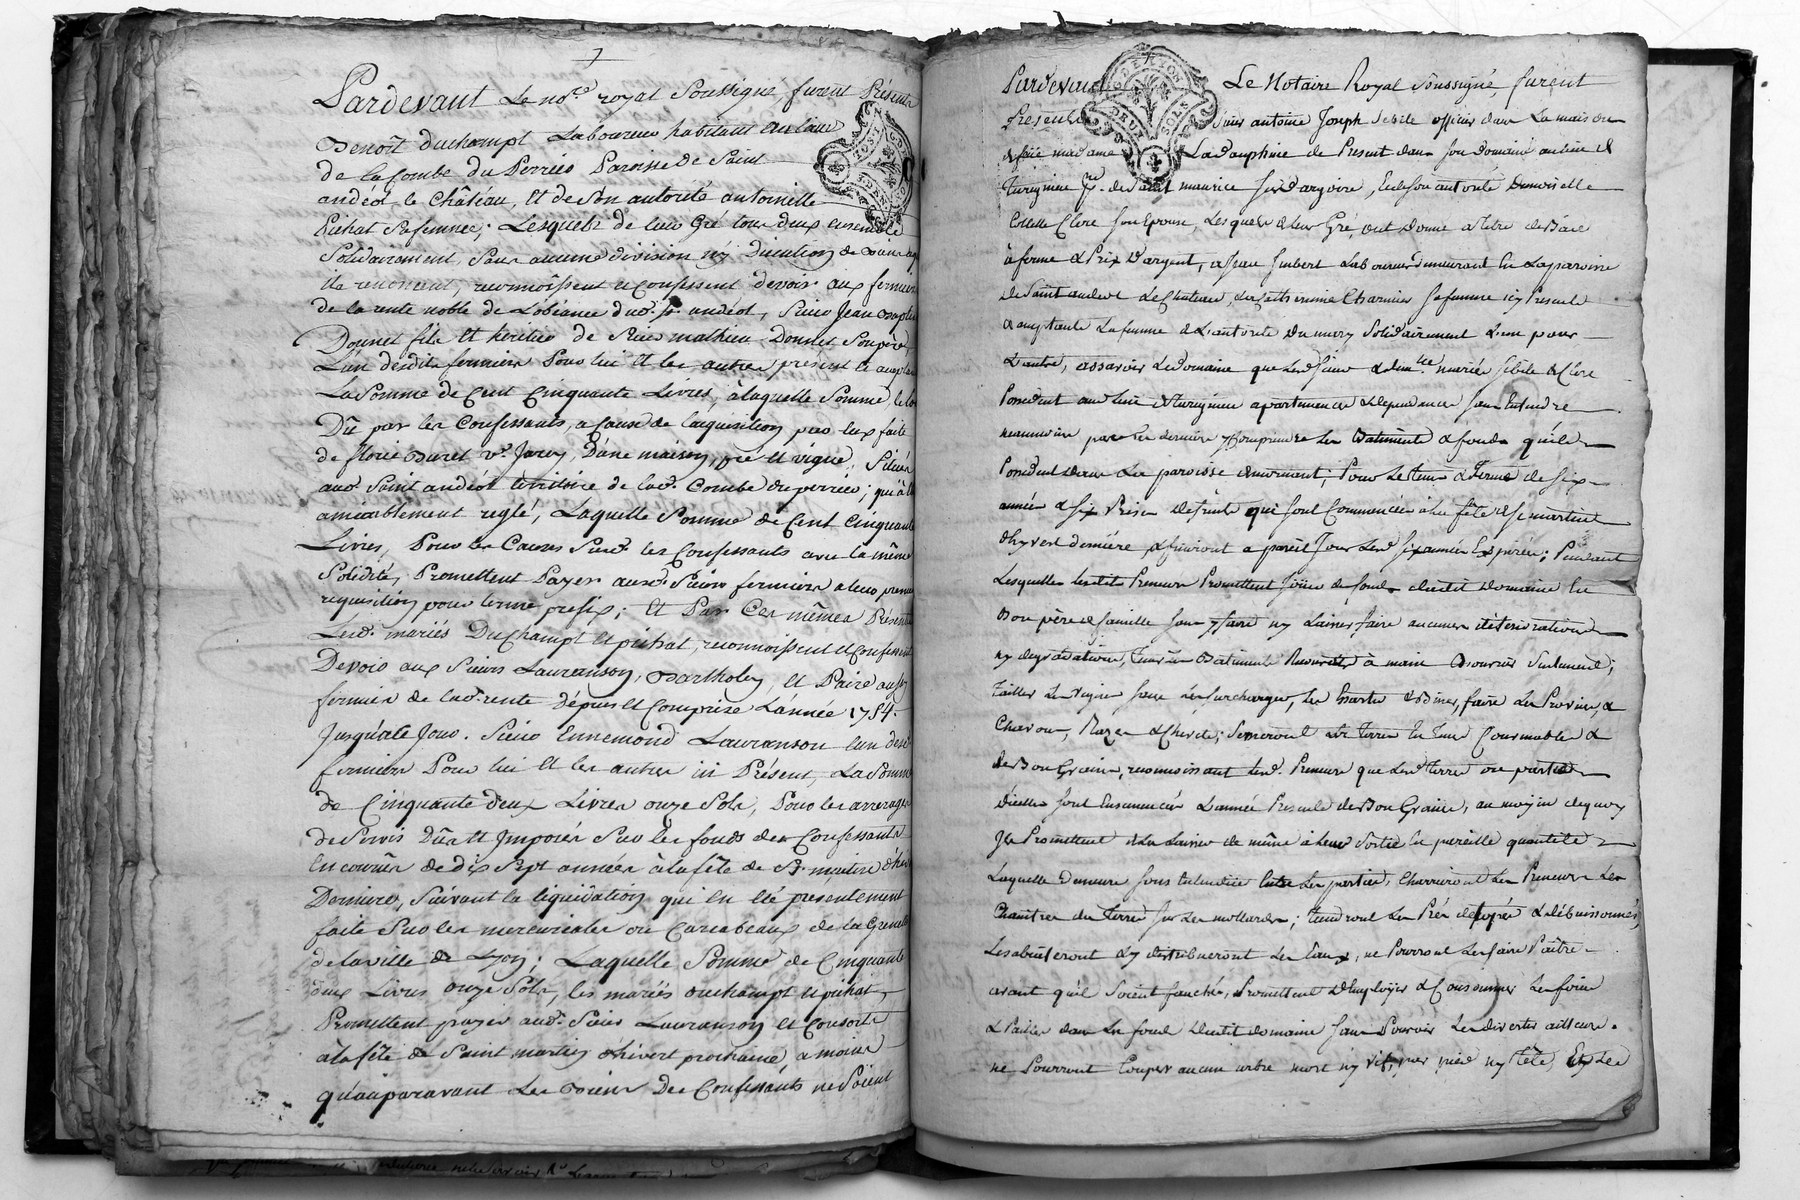 Pardevant Le no.re royal Soussigné, furent Présents
Benoît duchampt Laboureur habitant au lieu
de la Combe du Perriés Paroisse de Saint
andéol le Château, Et de son autorité antoinette
Pichat Sa femme; Lesquels de leur Gré tous deux ensemble
Solidairement, Sans aucune division n'y Discution de
ils renoncent, reconnoissent et Confessent devoir aux fermiers
de la rente noble de L'obéance dud. St. andéol, Sieur Jean
Donnet fils Et héritier de Sieur mathieu Donnet Son père,
L'un desdits fermiers Pour lui Et les autres present et
La Somme de Cent Cinquante Livres, à laquelle Somme
Dû par les Confessants, a Cause de lacquisition par Eux faite
de florie Buret v.e Jarey, D'une maison, pré Et vigne, Situés
aud. Saint andéol territoire de lad. Combe du perrier; qui a été
amiablement reglé, Laquelle Somme de Cent Cinquante
Livres, Pour les Causes Susd. les Confessants avec la même
Solidité, Promettent Payer auxd. Sieurs fermiers a leur premiere
requisition pour terme prefix; Et Par Ces mêmes Présentes
Lesd. mariés Duchampt et pichat, reconnoissent et Confessent
Devoir aux Sieurs Lauranson, Bartholey, Et Paire aussy
fermiers de lad. rente Dépuis Et Comprise L'année 1754.
Jusqu'à le Jour. Sieur Ennemond Lauranson l'un desd.
fermiers Pour lui Et les autres ici Présent, La Somme
de Cinquante deux Livres onze Sols, Pour les arrerages
de Servis Dûs Et Imposés Sur les fonds des Confessants
Encourus de dix Sept années à la fête de St. martin d'hiver
Derniere, Suivant la liquidation qui en Eté presentement
faite Sur les mercuriales ou Carcabeaux de la Grenette
de la ville de Lyon; Laquelle Somme de Cinquante
deux Livres onze Sols, les mariés duchampt et pichat,
Promettent payer aud. Sieur Lauranson Et Consorts
à la fête de Saint martin d'hivert prochaine, a moins
qu'auparavant Les Biens Des Confessants ne Soient
Pardevant Le Notaire Royal Soussigné, furent
Présents Sieur antoine Joseph Sebile officier dans La maison
de feüe madame La dauphine de Present dans Son Domaine au lieu de
Turignieu P.sse de Saint maurice Sur d'argoire, Et de Son autorité Demoiselle
Colette Clere Son Epouse, Lesquels de leur Gré, ont donné a titre de Bail
à ferme & Prix D'argent, a Jean Imbert Laboureur demeurant En La paroisse
de Saint andeol Le Chateau, & Catherinne Charmier Sa femme icy Presents
& acceptants La femme de L'autorité Du mary Solidairement L'un pour
L'autre, assavoir Le Domaine que Lesd. Sieur & dem.lle mariés Sebile & Clere
Possedent aud. Lieu de Turignieu apartenances & dependances Sans Entendre
neanmoins par les derniers y Comprendre Les Batiments & fonds qu'ils
Possedent dans La paroisse de mornant; Pour Le tems & Terme de Six
années & Six Prises de fruits qui Sont Commencées à La fête de St. martin
d'hyvert derniere & finiront a pareil Jour Lesd. Six années Expirées; Pendant
Lesquelles Lesdits Preneurs Promettent Joüir des fonds dudit Domaine En
Bon père de famille Sans y faire ny Laisser faire aucunes détériorations
ny degradations, Tenir Les Bâtiments Recouverts à main D'ouvrier Seulement;
Tailler Les vignes Sans Les Surcharger, Les Essarter & Biner, faire Les Provins, &
, Razer & ; Semeront Les Terres En Tems Convenable &
de Bon Grain, reconnoissant Lesd. Preneurs que Lesd. Terres ou partie
d'icelles Sont Ensemencées L'année Presente de Bon Grain, au moyen de quoy
Ils Promettent de Les Laisser de même à Leur Sortie En pareille quantité
Laquelle demeure Sous Entendüe Entre Les parties, Charrieront Les Preneurs Les
Chaintres des Terres Sur Les mollards; Tiendront Les Prés & débuissonnés,
Les abüteront & y distribueront Les Eaux, ne Pourront Les faire Paître
avant qu'ils Soient fauchés, Promettent d'Employer & Consommer Les foins
& Pailles dans Les fonds dudit domaine Sans Pouvoir Les divertir ailleurs.
ne Pourront Couper aucun arbre mort ny vif, par pied ny tête, Et Les